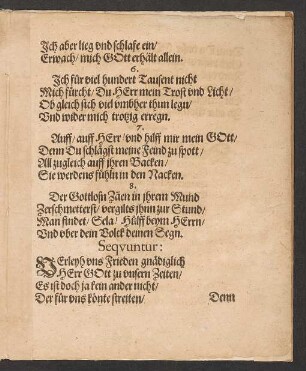 Ich aber lieg vnd schlafe ein/
Erwach/ mich GOtt erhält allein.
6.
Ich für viel hundert Tausent nicht
Mich fürcht/ Du HErr mein Trost vnd Licht/
Ob gleich sich viel vmbher thun legn/
Vnd wider mich trotzig erregn.
7.
Auff/ auff HErr/ vnd hilff mir mein GOtt/
Denn Du schlägst meine Feind zu spott/
All zugleich auff jhren Backen/
Sie werdens fühln in den Nacken.
8.
Der Gottlosn Zäen in jhrem Mund
Zerschmetterst/ vergilts jhnn zur Stund/
Man findet/ Sela/ Hülff beym HErrn/
Vnd vber dein Volck deinen Segn.
Seqvuntur:
VErleyh vns Frieden gnädiglich
HErr GOtt zu vnsern Zeiten/
Es ist doch ja kein ander nicht/
Der für vns könte streiten/ Denn